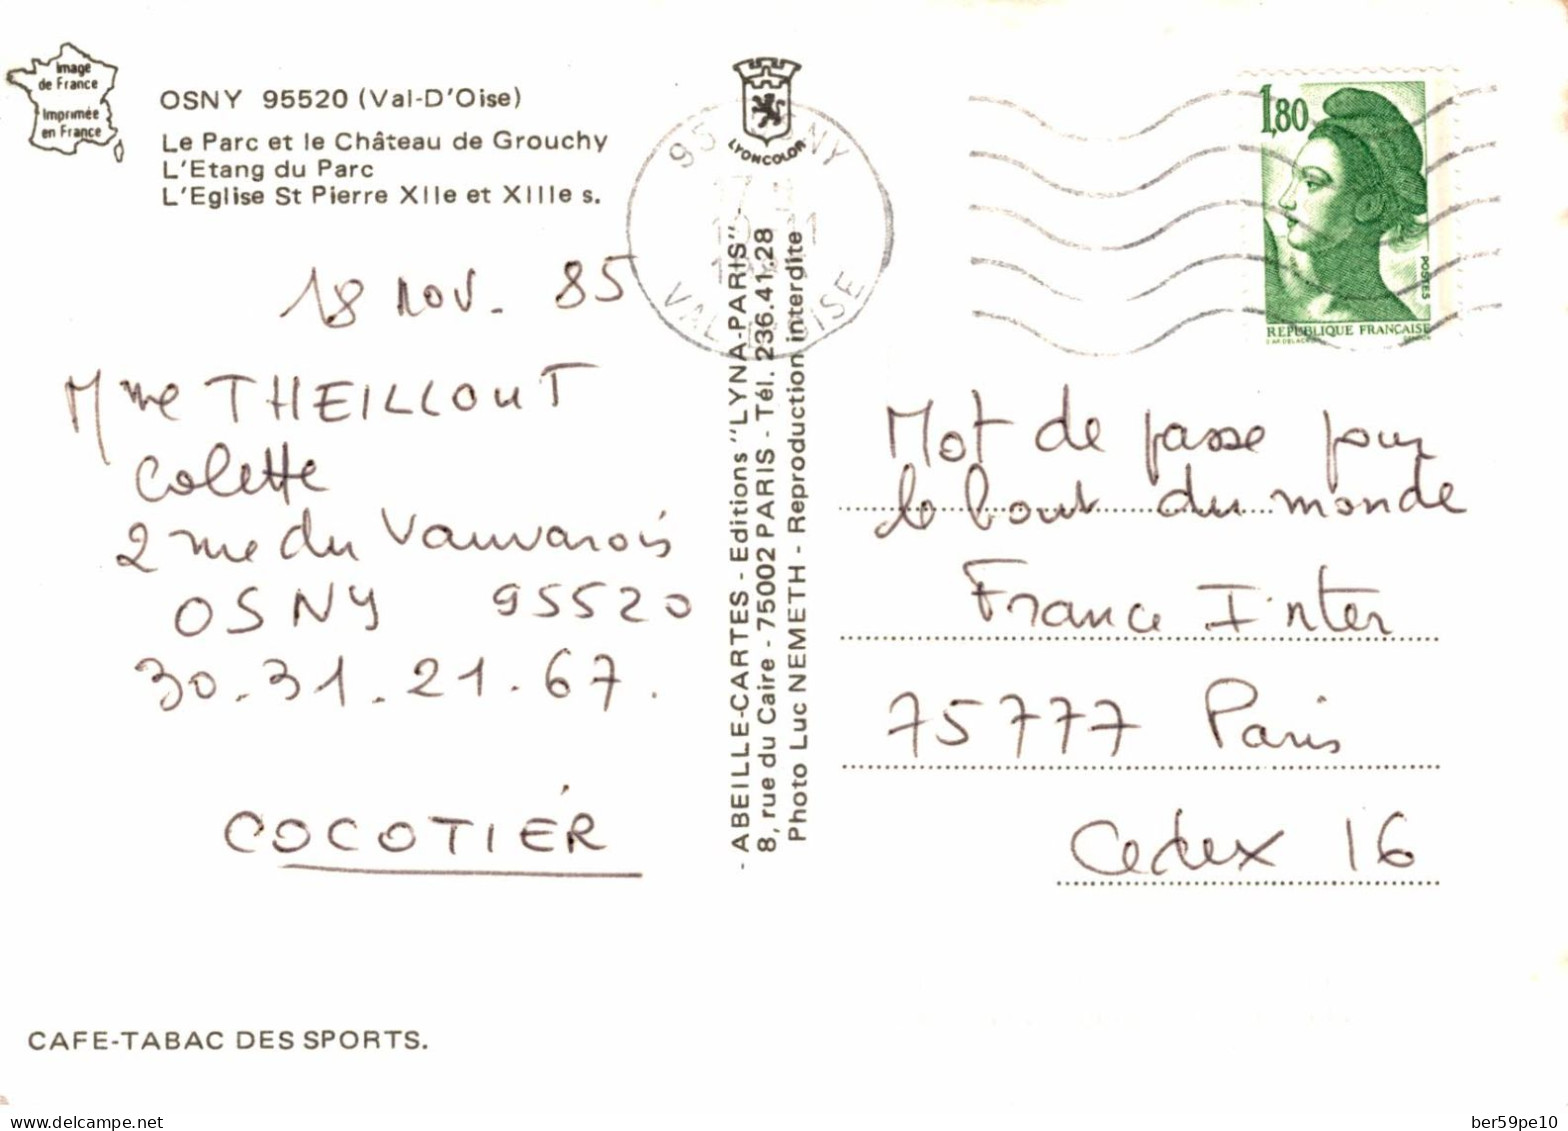 Image
de France
Imprimée
en France
OSNY 95520 (Val-D'Oise)
Le Parc et le Château de Grouchy
L'Etang du Parc
L'Eglise St Pierre XIIe et XIIIe s.
18 nov. 85
Mme THEILLOUT
Colette
2 rue du Vauvarois
OSNY 95520
30.31.21.67.
COCOTIER
CAFE-TABAC DES SPORTS.
LYONCOLOR
95 OSNY
VAL D'OISE
- ABEILLE-CARTES - Editions "LYNA-PARIS" -
8, rue du Caire - 75002 PARIS - Tél. 236.41.28
Photo Luc NEMETH - Reproduction interdite
1,80
POSTES
REPUBLIQUE FRANCAISE
Mot de passe pour
le bout du monde
France Inter
75777 Paris
Cedex 16
delcampe.net
ber59pe10